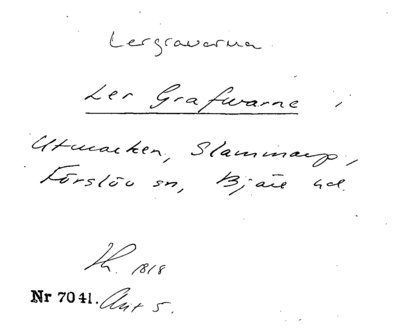 Lergravarna
Ler Grafwarne i
Utmarken, Slammarp,
Förslöv sn, Bjäre hd.
1818
Nr 7041. Akt 5.